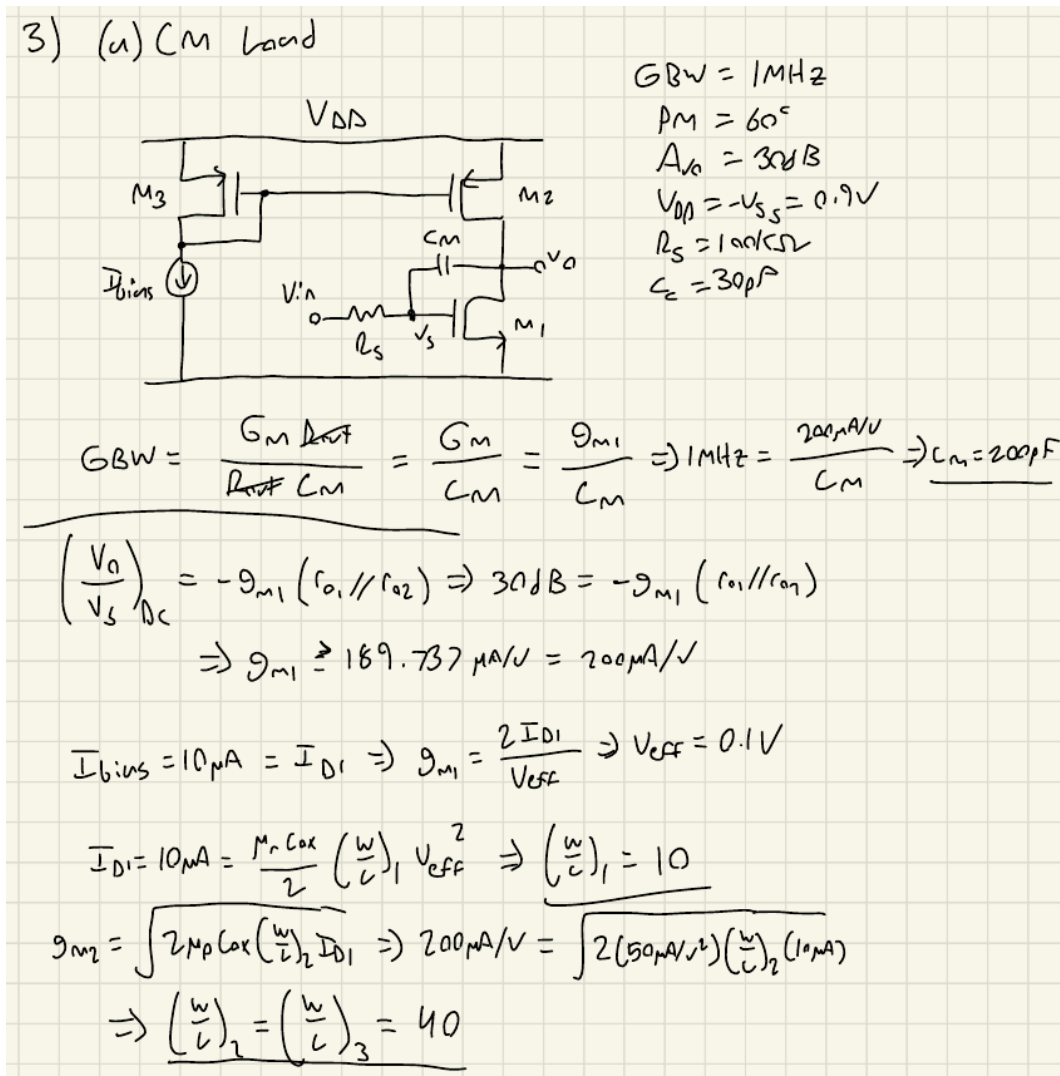 3) (a) CM Load
GBW = 1MHz
PM = 60°
Avo = 30dB
VDD = -VSS = 0.9V
RS = 100KΩ
CL = 30pF
VDD
M3
M2
CM
Vo
Ibias
Vin
RS
Vs
M1
GBW = GM Rout / Rout CM = GM / CM = gm1 / CM ⇒ 1MHz = 200μA/V / CM ⇒ CM = 200pF
(Vo / Vs)DC = -gm1 (ro1 // ro2) ⇒ 30dB = -gm1 (ro1 // ro2)
⇒ gm1 ≥ 189.737 μA/V = 200μA/V
Ibias = 10μA = ID1 ⇒ gm1 = 2ID1 / Veff ⇒ Veff = 0.1V
ID1 = 10μA = μn Cox / 2 (W/L)1 Veff² ⇒ (W/L)1 = 10
gm2 = √2μp Cox (W/L)2 ID1 ⇒ 200μA/V = √2(50μA/V²)(W/L)2 (10μA)
⇒ (W/L)2 = (W/L)3 = 40